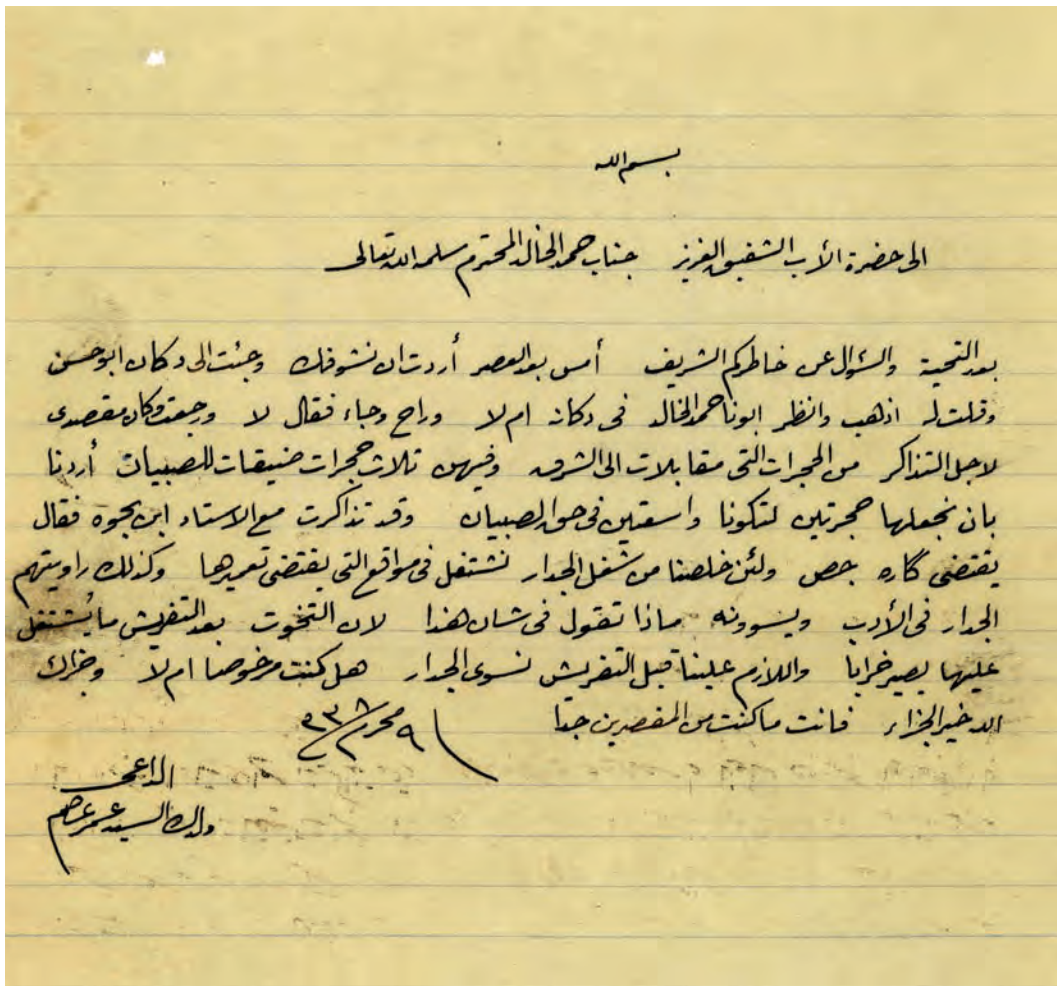 بسم الله
الى حضرة الأب الشفيق العزيز جناب حمد الخالد المحترم سلمه الله تعالى
بعد التحية والسؤال عن خاطركم الشريف أمس بعد العصر أردت ان نشوفك وجئت الى دكان ابو حسن
وقلت له اذهب وانظر ابونا حمد الخالد في دكانه ام لا وراح وجاء فقال لا ورجعت وكان مقصدى
لاجل التذاكر من الحجرات التي مقابلات الى الشرق وفيهن ثلاث حجرات ضيقات للصبيان أردنا
بان نجعلها حجرتين لتكونا واسعتين في حق الصبيان وقد تذاكرت مع الاستاد ابن بحوه فقال
يقتضى گاره جص ولئن خلصنا من شغل الجدار نشتغل في مواقع التي يقتضى تعميرها وكذلك راويتهم
الجدار في الأدب ويسوونه ماذا تقول في شان هذا لان التخوت بعد التفريش ما يُشتغل
عليها يصير خرابا واللازم علينا قبل التفريش نسوى الجدار هل كنت مرخوصنا ام لا وجزاك
الله خير الجزاء فانت ما كنت من المقصرين جدًا ٩ محرم
الداعى
ولدك السيد عمر عاصم